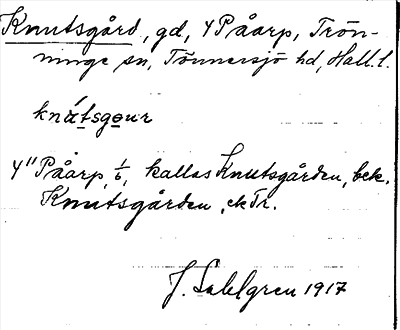 Knutsgård, gd, 4 Påarp, Trön-
ninge sn, Tönnersjö hd, Hall. l.
knátsgour
4" Påarp, 1/6, kallas Knutsgården, bek.
Knutsgården, ek Tr.
J. Sahlgren 1917